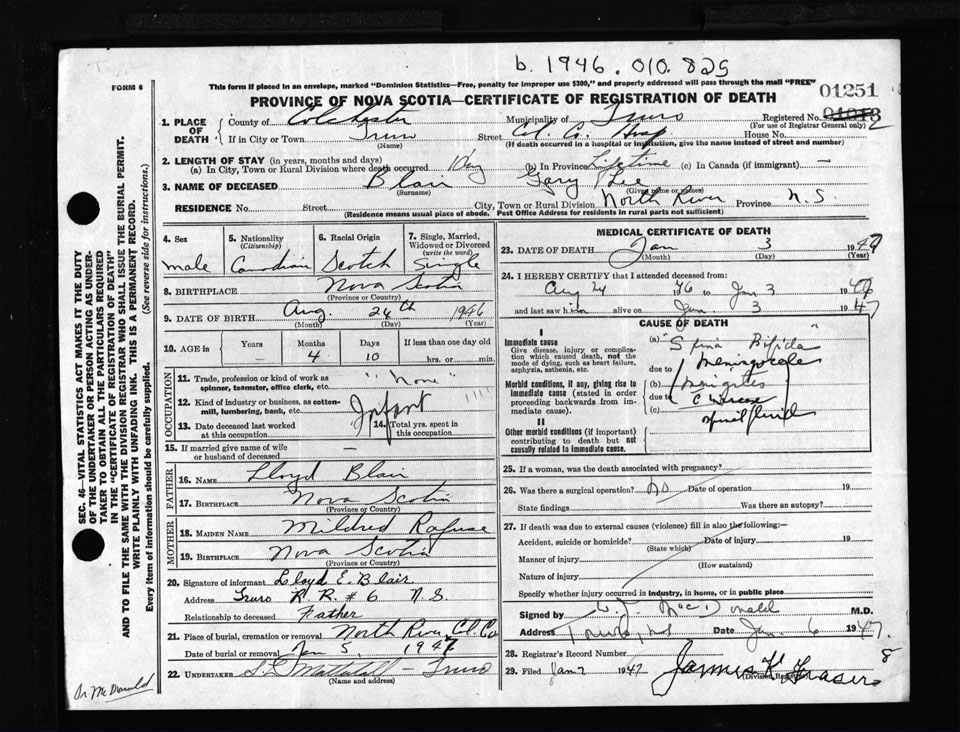 b. 1946. 010. 825
This form if placed in an envelope, marked "Dominion Statistics—Free, penalty for improper use $300," and properly addressed will pass through the mail "FREE"
FORM 6
PROVINCE OF NOVA SCOTIA—CERTIFICATE OF REGISTRATION OF DEATH
01251
1. PLACE OF DEATH
County of Colchester Municipality of Truro Registered No.
(For use of Registrar General only)
If in City or Town Truro Street Col. Co. Hosp House No.
(Name) (If death occurred in a hospital or institution, give the name instead of street and number)
2. LENGTH OF STAY (in years, months and days)
(a) In City, Town or Rural Division where death occurred 1 Day (b) In Province Lifetime (c) In Canada (if immigrant) —
3. NAME OF DECEASED Blair Gary Lee
(Surname) (Given name or names)
RESIDENCE No. Street City, Town or Rural Division North River Province N.S.
(Residence means usual place of abode. Post Office Address for residents in rural parts not sufficient)
4. Sex
male
5. Nationality
(Citizenship)
Canadian
6. Racial Origin
Scotch
7. Single, Married, Widowed or Divorced
(write the word)
Single
8. BIRTHPLACE Nova Scotia
(Province or Country)
9. DATE OF BIRTH Aug. 24th 1946
(Month) (Day) (Year)
10. AGE in Years Months Days If less than one day old
— 4 10 hrs. or min.
OCCUPATION
11. Trade, profession or kind of work as spinner, teamster, office clerk, etc. "None"
12. Kind of industry or business, as cotton-mill, lumbering, bank, etc.
Infant
13. Date deceased last worked at this occupation
14. Total yrs. spent in this occupation
15. If married give name of wife or husband of deceased —
FATHER
16. NAME Lloyd Blair
17. BIRTHPLACE Nova Scotia
(Province or Country)
MOTHER
18. MAIDEN NAME Mildred Rafuse
19. BIRTHPLACE Nova Scotia
(Province or Country)
20. Signature of informant Lloyd E. Blair
Address Truro R. R. # 6 N.S.
Relationship to deceased Father
21. Place of burial, cremation or removal North River, Col. Co
Date of burial or removal Jan 5, 1947
22. UNDERTAKER Mattatall — Truro
(Name and address)
MEDICAL CERTIFICATE OF DEATH
23. DATE OF DEATH Jan 3 1947
(Month) (Day) (Year)
24. I HEREBY CERTIFY that I attended deceased from:
Aug 24 1946 to Jan 3 1947
and last saw him alive on Jan 3 1947
CAUSE OF DEATH
I
Immediate cause
Give disease, injury or complication which caused death, not the mode of dying, such as heart failure, asphyxia, asthenia, etc.
(a) "Spina Bifida"
Meningocele
due to
Morbid conditions, if any, giving rise to immediate cause (stated in order proceeding backwards from immediate cause).
(b) Meningitis
due to
(c) c increase
spinal fluid
II
Other morbid conditions (if important) contributing to death but not causally related to immediate cause.
25. If a woman, was the death associated with pregnancy?
26. Was there a surgical operation? no Date of operation 19
State findings Was there an autopsy?
27. If death was due to external causes (violence) fill in also the following:—
Accident, suicide or homicide? Date of injury 19
(State which)
Manner of injury
(How sustained)
Nature of injury
Specify whether injury occurred in industry, in home, or in public place
Signed by MacDonald M.D.
Address Truro, N.S. Date Jan. 6 1947.
28. Registrar's Record Number 8
29. Filed Jan 2 1947 James H. Fraser
(Division Registrar)
SEC. 46—VITAL STATISTICS ACT MAKES IT THE DUTY
OF THE UNDERTAKER OR PERSON ACTING AS UNDER-
TAKER TO OBTAIN ALL THE PARTICULARS REQUIRED
IN THE "CERTIFICATE OF REGISTRATION OF DEATH"
AND TO FILE THE SAME WITH THE DIVISION REGISTRAR WHO SHALL ISSUE THE BURIAL PERMIT.
WRITE PLAINLY WITH UNFADING INK. THIS IS A PERMANENT RECORD.
Every item of information should be carefully supplied. (See reverse side for instructions.)
Dr McDonald